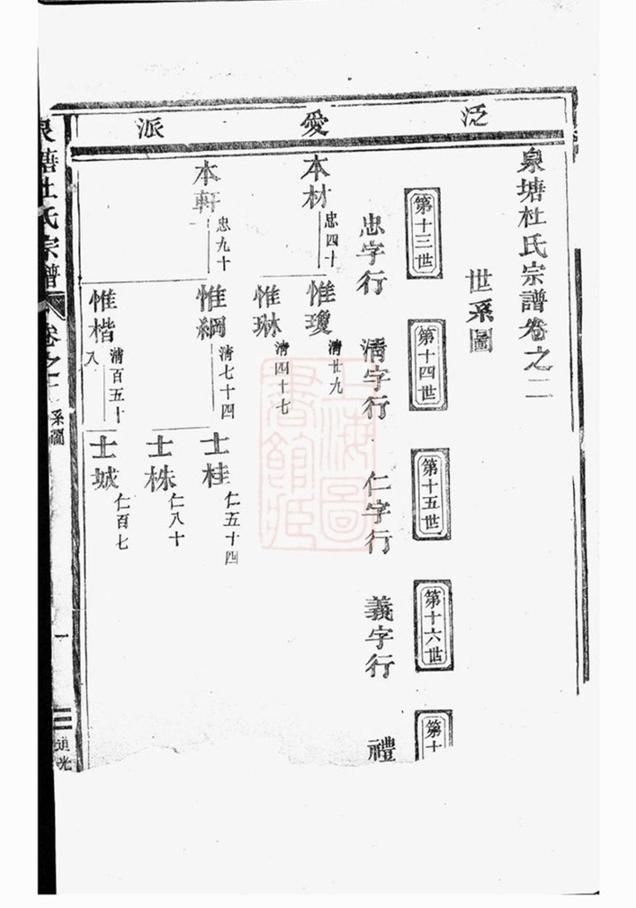 泛愛派
泉塘杜氏宗譜卷之二
世系圖
第十三世
第十四世
第十五世
第十六世
第十
忠字行
清字行
仁字行
義字行
禮
本材
忠四十
惟瓊
清廿九
惟琳
清四十七
本軒
忠九十
惟綱
清七十四
士桂
仁五十四
士株
仁八十
惟楷
清百五十八
士城
仁百七
泉塘杜氏宗譜
卷之二
系圖
一